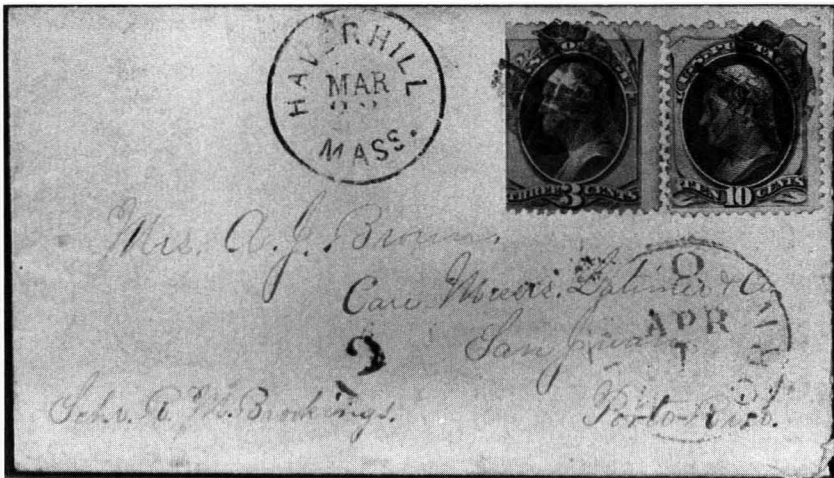 HAVERHILL
MAR
MASS.
THREE 3 CENTS
TEN 10 CENTS
Mrs. A. J. Brown,
Care Messrs. Latimer & Co
San Juan
Porto-Rico.
Schr. R. M. Brookings.
2
APR
1